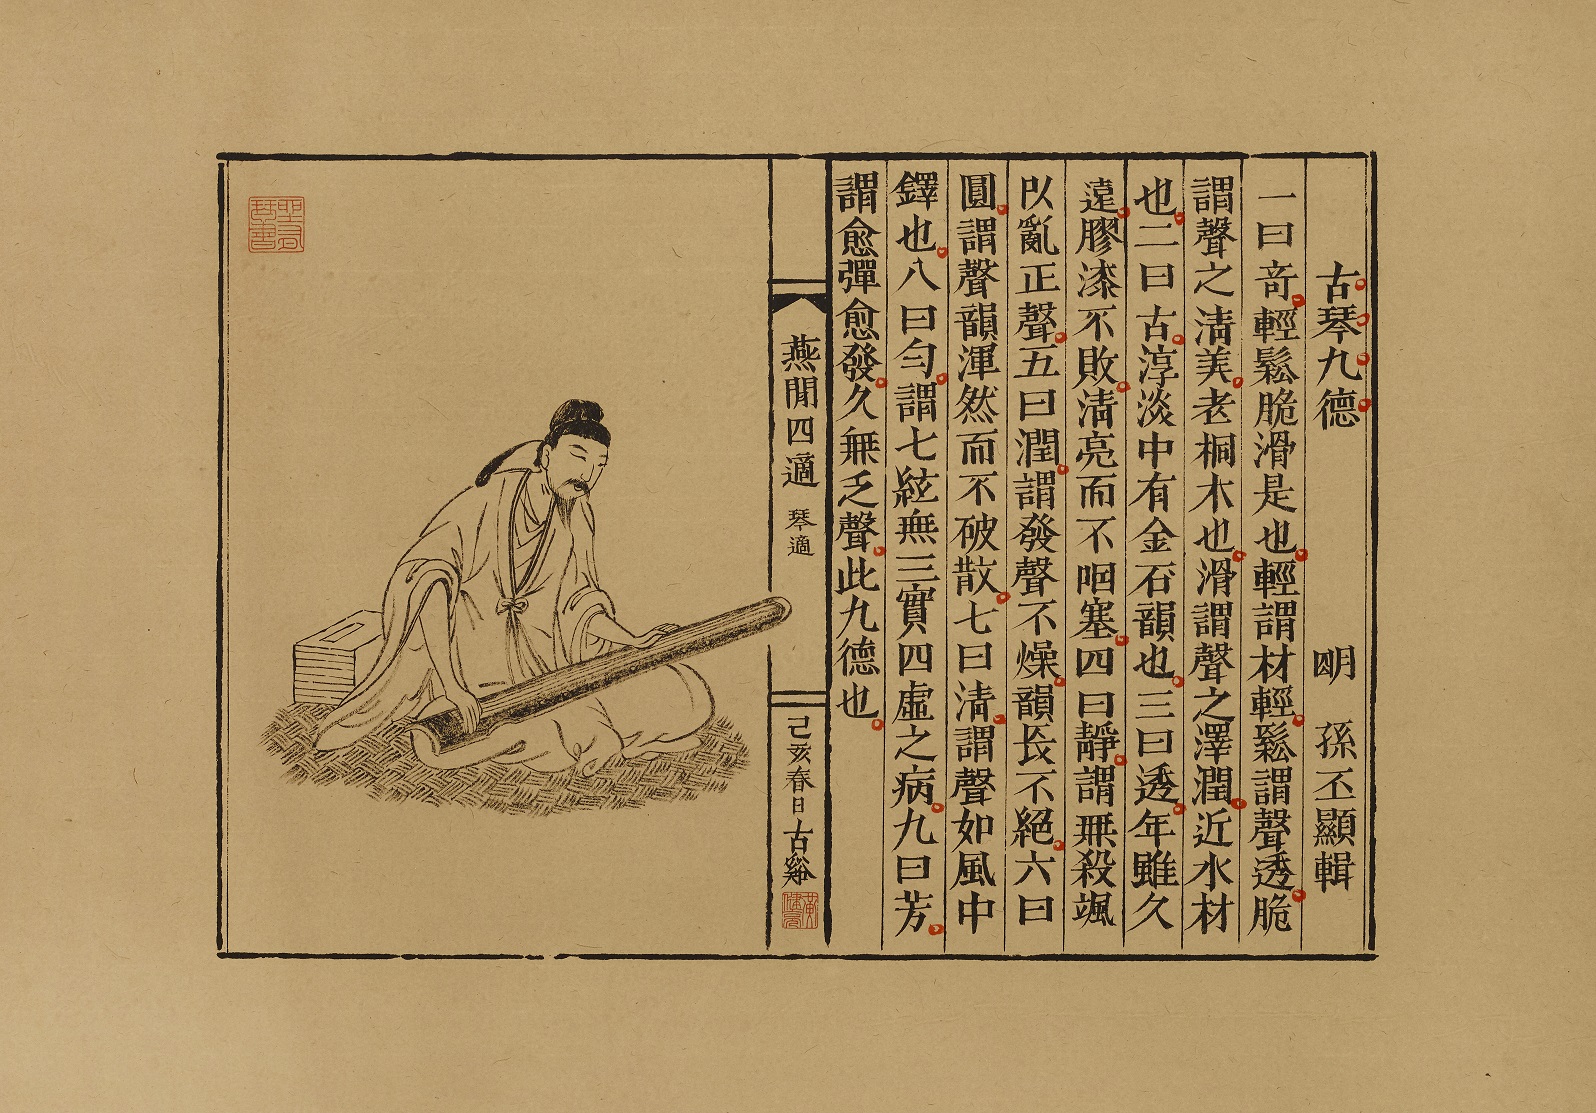 古琴九德　明　孫丕顯輯
一曰竒。輕鬆脆滑是也。輕謂材輕。鬆謂聲透。脆
謂聲之清美。老桐木也。滑謂聲之澤潤。近水材
也。二曰古。淳淡中有金石韻也。三曰透。年雖久
遠。膠漆不敗。清亮而不咽塞。四曰靜。謂無殺颯
以亂正聲。五曰潤。謂發聲不燥。韻長不絕。六曰
圓。謂聲韻渾然而不破散。七曰清。謂聲如風中
鐸也。八曰匀。謂七絃無三實四虛之病。九曰芳。
謂愈彈愈發。久無乏聲。此九德也。
燕閒四適　琴適
己亥春日　古谿
黃健亮